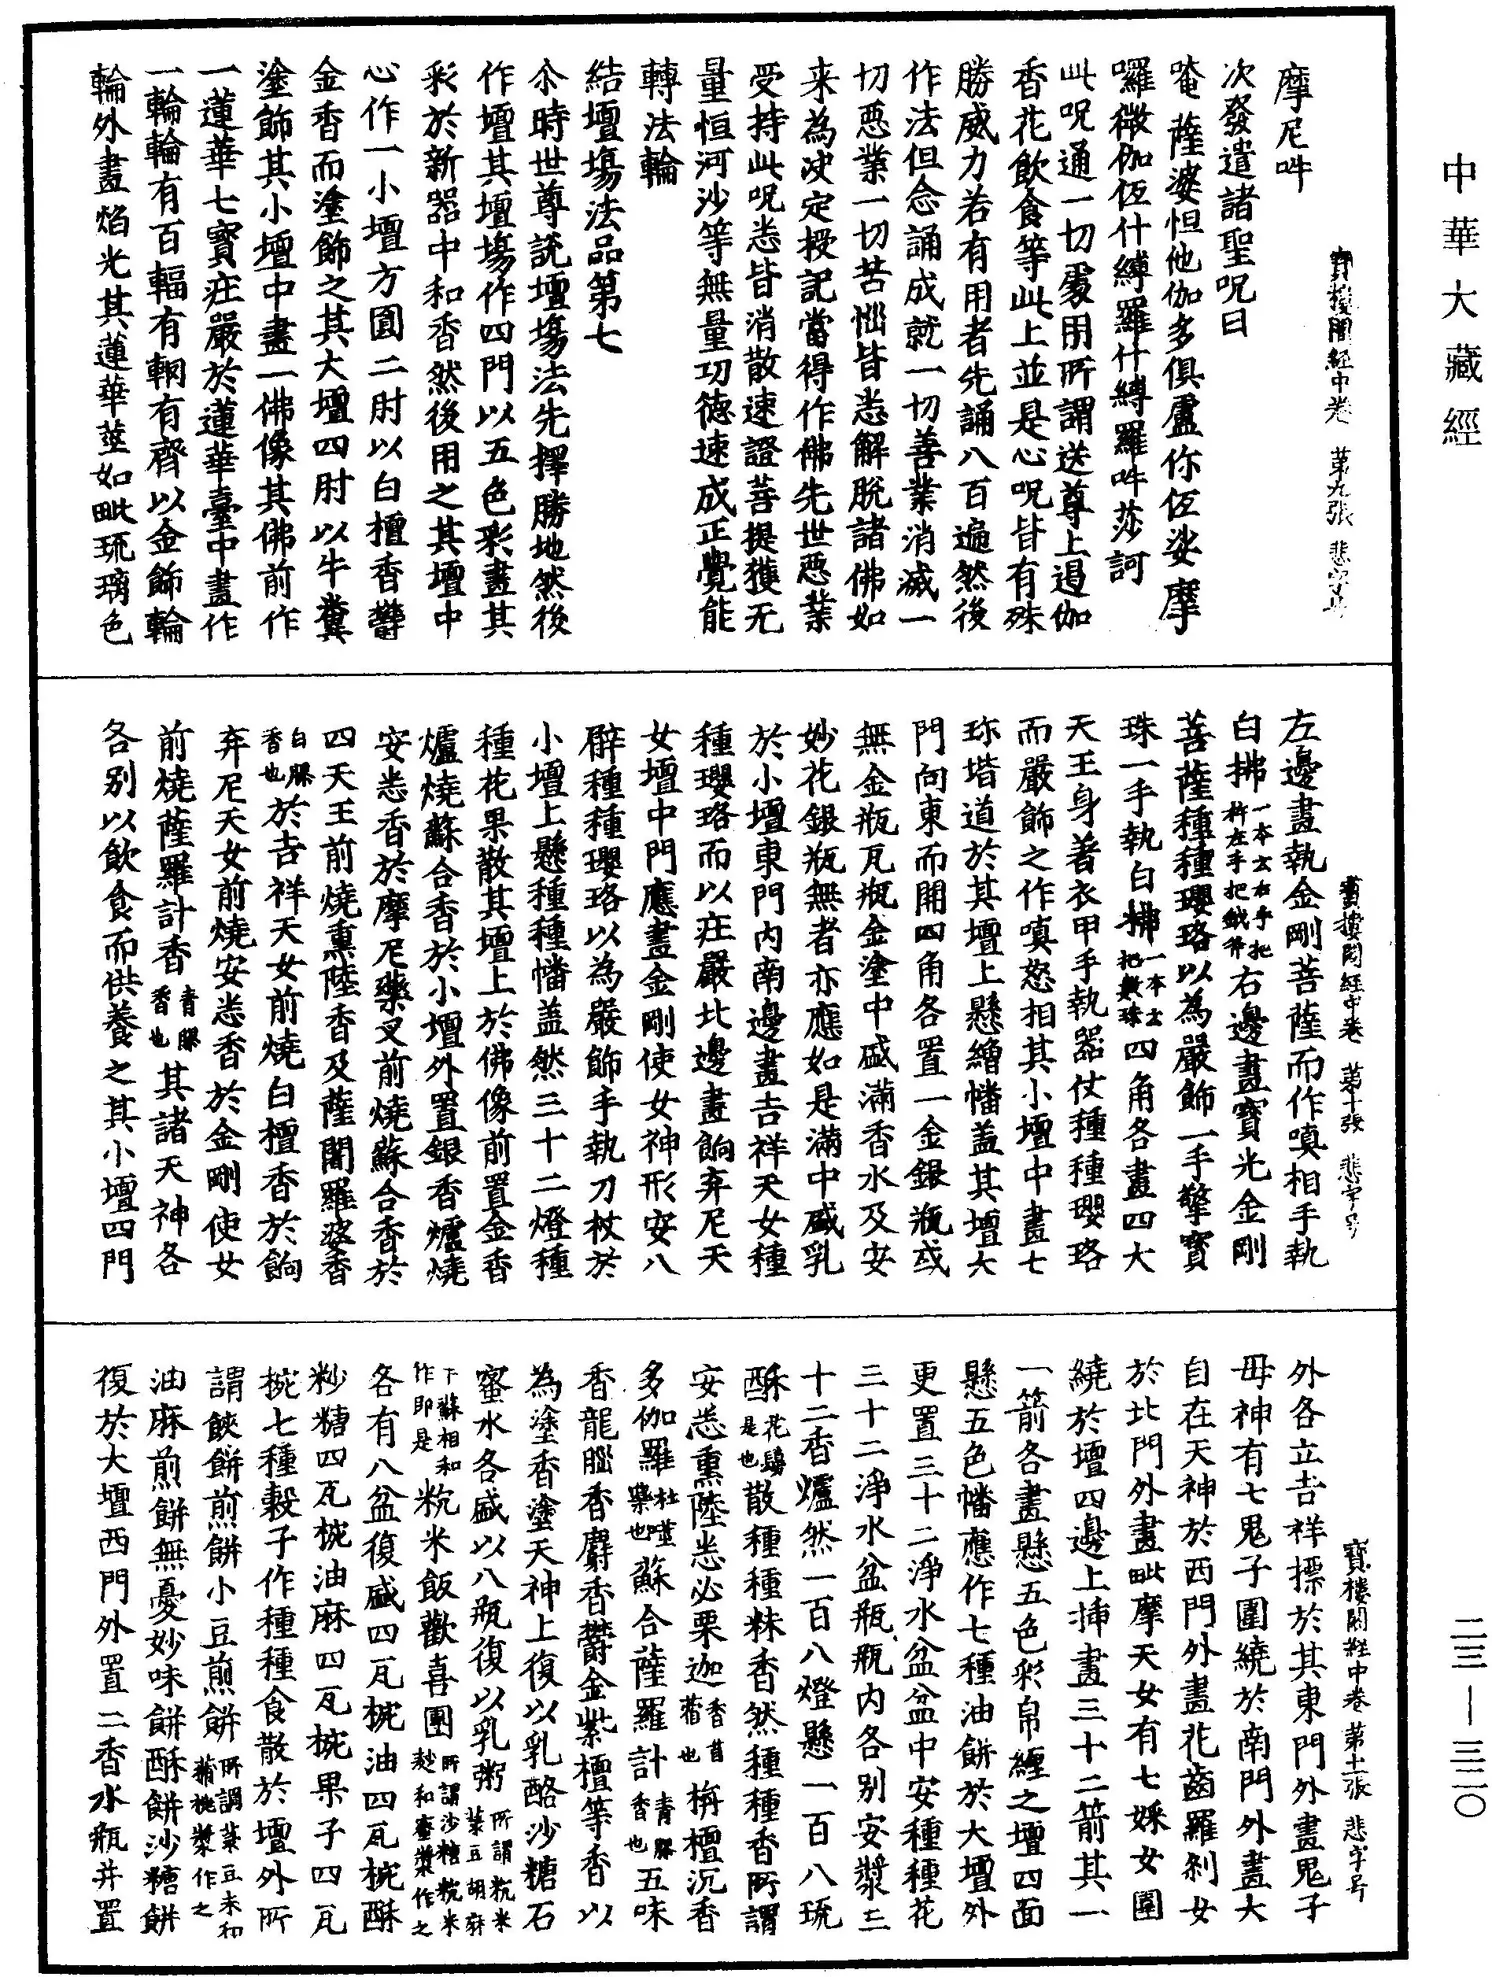 中華大藏經
寶樓閣經中卷 第九張 悲字号
摩尼吽
次發遣諸聖呪曰
唵 薩婆怛他伽多俱盧你伍娑 摩
囉微伽伍什縛羅什縛羅吽莎訶
此呪通一切處用所謂送尊上遏伽
香花飲食等此上並是心呪皆有殊
勝威力若有用者先誦八百遍然後
作法但念誦成就一切善業消滅一
切惡業一切苦惱皆悉解脫諸佛如
来為决定授記當得作佛先世惡業
受持此呪悉皆消散速證菩提獲无
量恒河沙等無量功德速成正覺能
轉法輪
結壇場法品第七
尒時世尊說壇場法先擇勝地然後
作壇其壇場作四門以五色彩畫其
彩於新器中和香然後用之其壇中
心作一小壇方圓二肘以白檀香鬱
金香而塗飾之其大壇四肘以牛糞
塗飾其小壇中畫一佛像其佛前作
一蓮華七寶莊嚴於蓮華臺中畫作
一輪輪有百輻有輞有齊以金飾輪
輪外畫焰光其蓮華莖如毗琉璃色
寶樓閣經中卷 第十張 悲字号
左邊畫執金剛菩薩而作嗔相手執
白拂一本云右手把杵左手把鉞斧右邊畫寶光金剛
菩薩種種瓔珞以為嚴飾一手擎寶
珠一手執白拂一本云把數珠四角各畫四大
天王身著衣甲手執器仗種種瓔珞
而嚴飾之作嗔怒相其小壇中畫七
珎堦道於其壇上懸繒幡蓋其壇大
門向東而開四角各置一金銀瓶或
無金瓶瓦瓶金塗中盛滿香水及安
妙花銀瓶無者亦應如是滿中盛乳
於小壇東門內南邊畫吉祥天女種
種瓔珞而以莊嚴北邊畫餉弃尼天
女壇中門應畫金剛使女神形安八
臂種種瓔珞以為嚴飾手執刀杖於
小壇上懸種種幡蓋然三十二燈種
種花果散其壇上於佛像前置金香
爐燒蘇合香於小壇外置銀香爐燒
安悉香於摩尼藥叉前燒蘇合香於
四天王前燒熏陸香及薩闍羅婆香
白膠香也於吉祥天女前燒白檀香於餉
弃尼天女前燒安悉香於金剛使女
前燒薩羅計香青膠香也其諸天神各
各別以飲食而供養之其小壇四門
寶樓閣經中卷 第十一張 悲字号
外各立吉祥摽於其東門外畫鬼子
母神有七鬼子圍繞於南門外畫大
自在天神於西門外畫花齒羅剎女
於北門外畫毗摩天女有七婇女圍
繞於壇四邊上揷畫三十二箭其一
一箭各畫懸五色彩帛纏之壇四面
懸五色幡應作七種油餅於大壇外
更置三十二淨水盆盆中安種種花
三十二淨水盆瓶瓶內各別安漿三
十二香爐然一百八燈懸一百八琉
酥花鬘是也散種種粖香然種種香所謂
安悉熏陸悉必栗迦香苜蓿也栴檀沉香
多伽羅杜噬藥也蘇合薩羅計青膠香也五味
香龍腦香麝香鬱金紫檀等香以
為塗香塗天神上復以乳酪沙糖石
蜜水各盛以八瓶復以乳粥所謂粇米菉豆胡麻
下蘇相和作即是粇米飯歡喜團所謂沙糖粇米麨和蜜漿作之
各有八盆復盛四瓦椀油四瓦椀酥
粆糖四瓦椀油麻四瓦椀果子四瓦
椀七種穀子作種種食散於壇外所
謂餄餅煎餅小豆煎餅所謂菉豆末和蒱桃漿作之
油麻煎餅無憂妙味餅酥餅沙糖餅
復於大壇西門外置二香水瓶并置
二三—三二〇